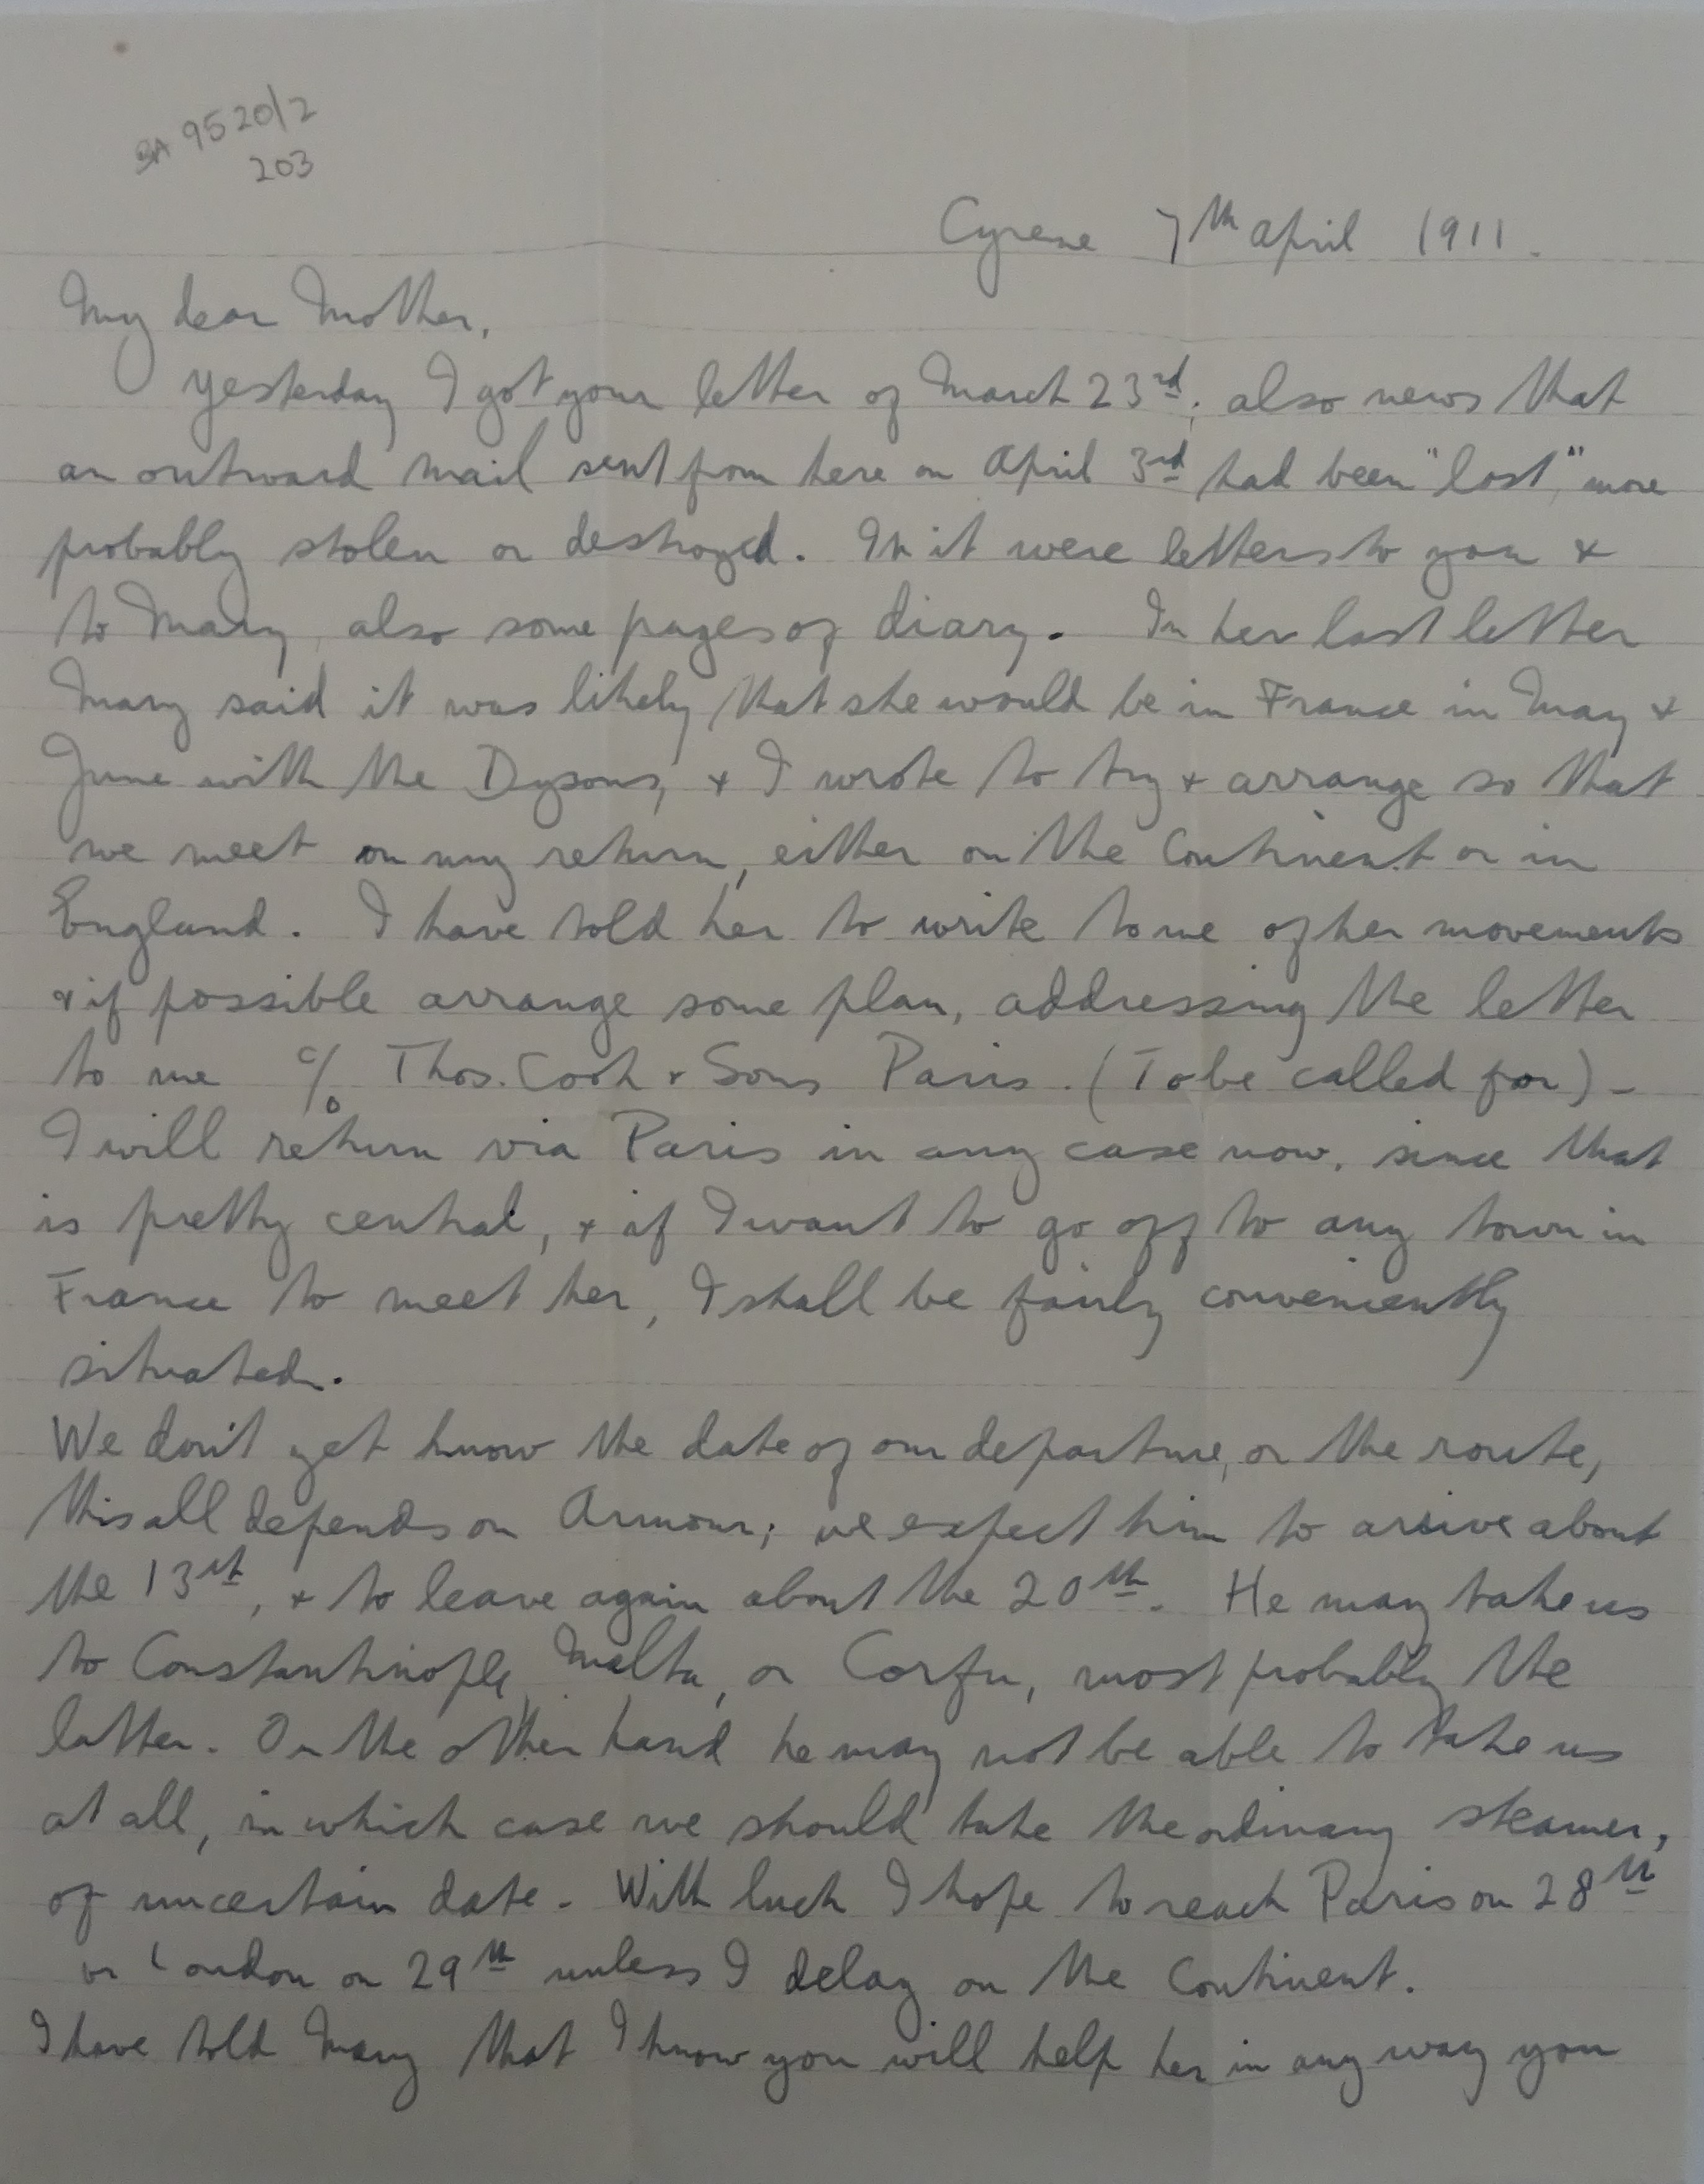 BA 9520/2
203
Cyrene 7th April 1911.
My dear Mother,
Yesterday I got your letter of March 23rd; also news that
an outward mail sent from here on April 3rd had been "lost," more
probably stolen or destroyed. In it were letters to you &
to Mary, also some pages of diary. In her last letter
Mary said it was likely that she would be in France in May &
June with the Dysons, & I wrote to try & arrange so that
we meet on my return, either on the Continent or in
England. I have told her to write to me of her movements
& if possible arrange some plan, addressing the letter
to me c/o Thos. Cook & Sons Paris. (To be called for) -
I will return via Paris in any case now, since that
is pretty central, & if I want to go off to any town in
France to meet her, I shall be fairly conveniently
situated.
We don't yet know the date of our departure, or the route,
this all depends on Armour; we expect him to arrive about
the 13th, & to leave again about the 20th. He may take us
to Constantinople, Malta, or Corfu, most probably the
latter. On the other hand he may not be able to take us
at all, in which case we should take the ordinary steamer,
of uncertain date. With luck I hope to reach Paris on 28th
or London on 29th unless I delay on the Continent.
I have told Mary that I know you will help her in any way you